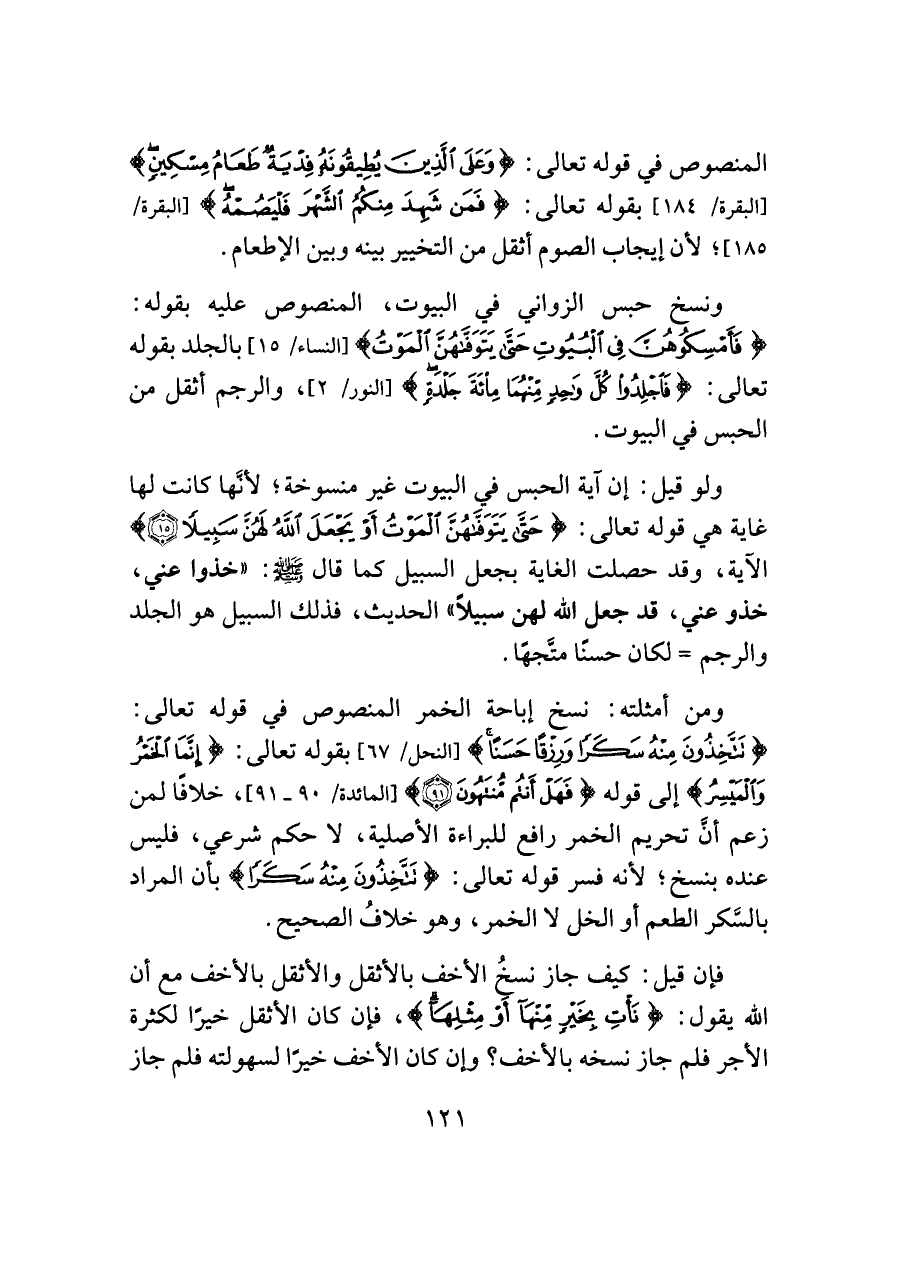 المنصوص في قوله تعالى: ﴿ وَعَلَى ٱلَّذِينَ يُطِيقُونَهُۥ فِدْيَةٌ طَعَامُ مِسْكِينٍۖ ﴾
[البقرة/ ١٨٤] بقوله تعالى: ﴿ فَمَن شَهِدَ مِنكُمُ ٱلشَّهْرَ فَلْيَصُمْهُۖ ﴾ [البقرة/
١٨٥]؛ لأن إيجاب الصوم أثقل من التخيير بينه وبين الإطعام.
ونسخ حبس الزواني في البيوت، المنصوص عليه بقوله:
﴿ فَأَمْسِكُوهُنَّ فِي ٱلْبُيُوتِ حَتَّىٰ يَتَوَفَّىٰهُنَّ ٱلْمَوْتُ ﴾ [النساء/ ١٥] بالجلد بقوله
تعالى: ﴿ فَٱجْلِدُوا۟ كُلَّ وَٰحِدٍ مِّنْهُمَا مِا۟ئَةَ جَلْدَةٍۖ ﴾ [النور/ ٢]، والرجم أثقل من
الحبس في البيوت.
ولو قيل: إن آية الحبس في البيوت غير منسوخة؛ لأنَّها كانت لها
غاية هي قوله تعالى: ﴿ حَتَّىٰ يَتَوَفَّىٰهُنَّ ٱلْمَوْتُ أَوْ يَجْعَلَ ٱللَّهُ لَهُنَّ سَبِيلًا ١٥ ﴾
الآية، وقد حصلت الغاية بجعل السبيل كما قال ﷺ: «خذوا عني،
خذو عني، قد جعل الله لهن سبيلاً» الحديث، فذلك السبيل هو الجلد
والرجم = لكان حسنًا متَّجهًا.
ومن أمثلته: نسخ إباحة الخمر المنصوص في قوله تعالى:
﴿ نَتَّخِذُونَ مِنْهُ سَكَرًا وَرِزْقًا حَسَنًاۚ ﴾ [النحل/ ٦٧] بقوله تعالى: ﴿ إِنَّمَا ٱلْخَمْرُ
وَٱلْمَيْسِرُ ﴾ إلى قوله ﴿ فَهَلْ أَنتُم مُّنتَهُونَ ٩١ ﴾ [المائدة/ ٩٠ - ٩١]، خلافًا لمن
زعم أنَّ تحريم الخمر رافع للبراءة الأصلية، لا حكم شرعي، فليس
عنده بنسخ؛ لأنه فسر قوله تعالى: ﴿ نَتَّخِذُونَ مِنْهُ سَكَرًا ﴾ بأن المراد
بالسَّكر الطعم أو الخل لا الخمر، وهو خلافُ الصحيح.
فإن قيل: كيف جاز نسخُ الأخف بالأثقل والأثقل بالأخف مع أن
الله يقول: ﴿ نَأْتِ بِخَيْرٍ مِّنْهَآ أَوْ مِثْلِهَآۗ ﴾، فإن كان الأثقل خيرًا لكثرة
الأجر فلم جاز نسخه بالأخف؟ وإن كان الأخف خيرًا لسهولته فلم جاز
١٢١